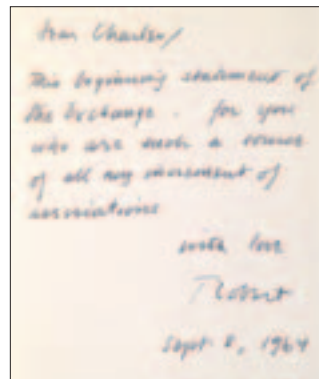 Dear Charles/
This beginning statement of
the exchange. for you
who are such a source
of all my movement of
associations
with love
Robert
Sept 8, 1964